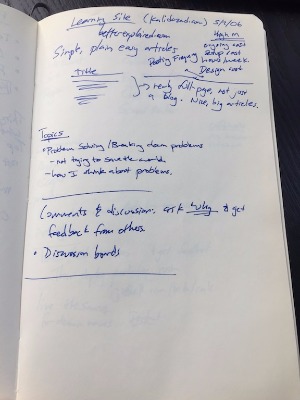 Learning Site (Kalidazadian) 5/1/06
betterexplained.com
Simple, plain easy articles
High M
ongoing cost
Setup cost
Posting Frequency hours/week.
Design cost
Title
→ really full page, not just
a Blog. Nice, big articles.
Topics
• Problem Solving / Breaking down problems
- not trying to save the world
- how I think about problems.
Comments & discussion, ask why to get
feedback from others
• Discussion boards